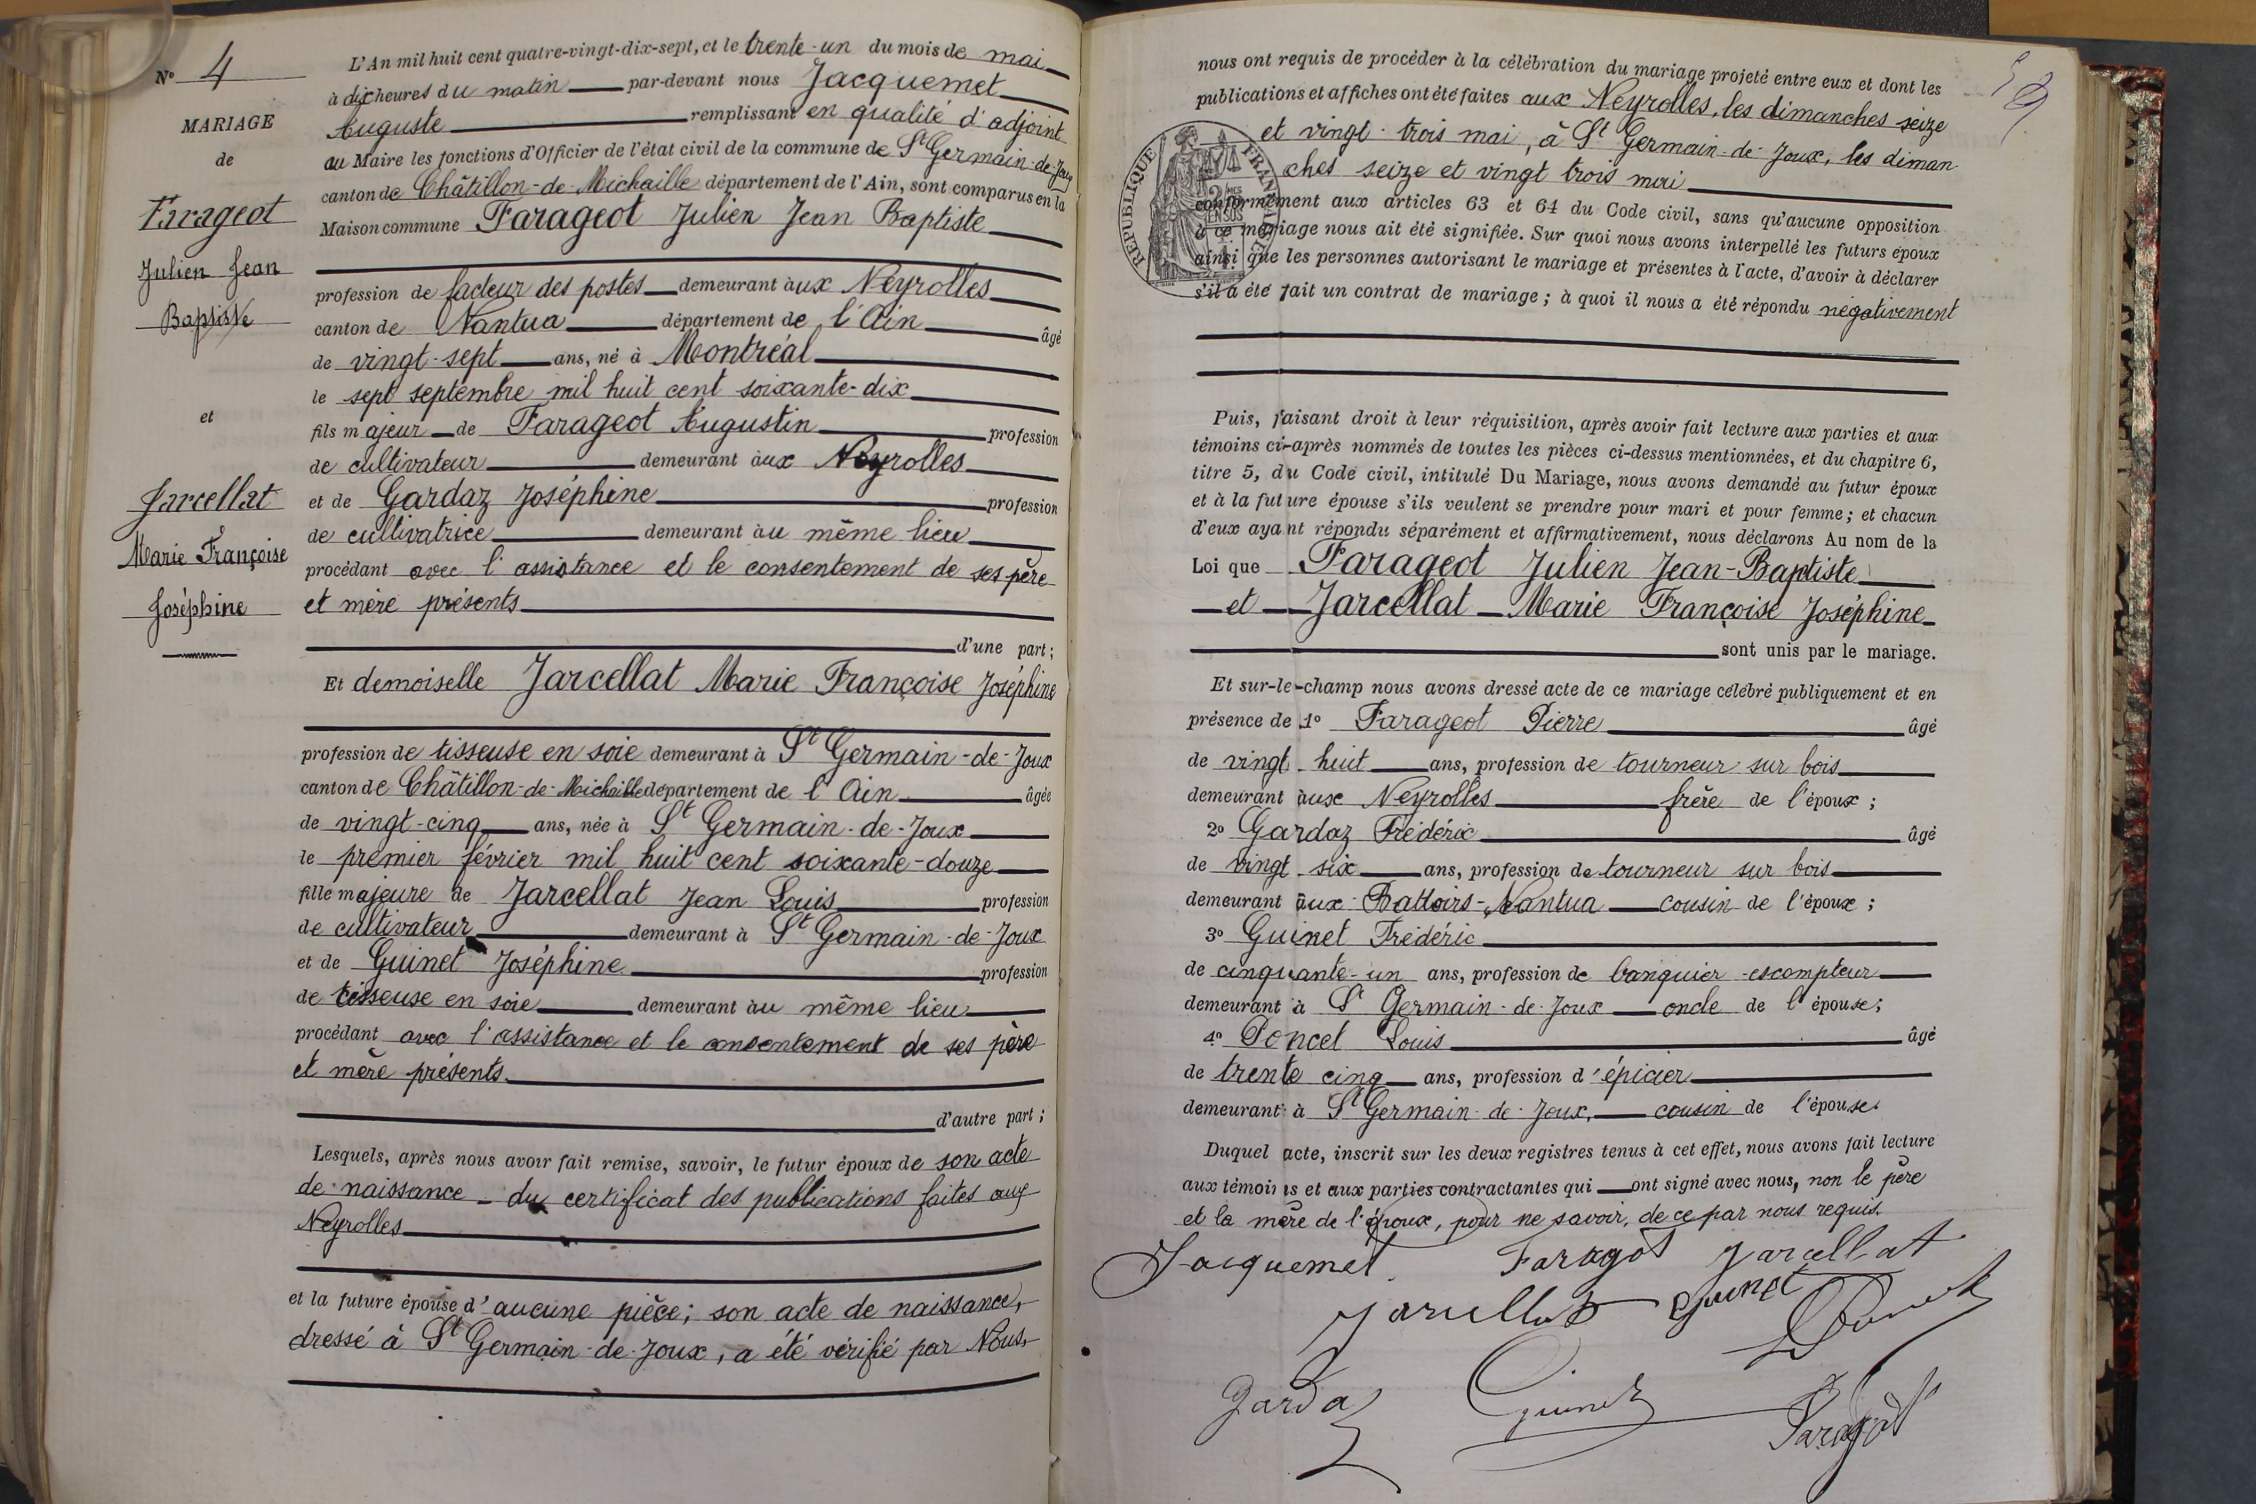 N° 4
MARIAGE
de
Farageot
Julien Jean
Baptiste
et
Jarcellat
Marie Françoise
Joséphine
L'An mil huit cent quatre-vingt-dix-sept, et le trente-un du mois de mai
à dix heures du matin par-devant nous Jacquemet
Auguste remplissant en qualité d'adjoint
au Maire les fonctions d'Officier de l'état civil de la commune de St Germain-de-Joux
canton de Châtillon-de-Michaille département de l'Ain, sont comparus en la
Maison commune Farageot Julien Jean Baptiste
profession de facteur des postes demeurant aux Neyrolles
canton de Nantua département de l'Ain âgé
de vingt-sept ans, né à Montréal
le sept septembre mil huit cent soixante-dix
fils majeur de Farageot Augustin profession
de cultivateur demeurant aux Neyrolles
et de Gardaz Joséphine profession
de cultivatrice demeurant au même lieu
procédant avec l'assistance et le consentement de ses père
et mère présents
d'une part;
Et demoiselle Jarcellat Marie Françoise Joséphine
profession de tisseuse en soie demeurant à St Germain-de-Joux
canton de Châtillon-de-Michaille département de l'Ain âgée
de vingt-cinq ans, née à St Germain-de-Joux
le premier février mil huit cent soixante-douze
fille majeure de Jarcellat Jean Louis profession
de cultivateur demeurant à St Germain-de-Joux
et de Guinet Joséphine profession
de tisseuse en soie demeurant au même lieu
procédant avec l'assistance et le consentement de ses père
et mère présents
d'autre part;
Lesquels, après nous avoir fait remise, savoir, le futur époux de son acte
de naissance - du certificat des publications faites aux
Neyrolles
et la future épouse d'aucune pièce; son acte de naissance,
dressé à St Germain-de-Joux, a été vérifié par Nous,
nous ont requis de procéder à la célébration du mariage projeté entre eux et dont les
publications et affiches ont été faites aux Neyrolles, les dimanches seize
et vingt-trois mai, à St Germain-de-Joux, les diman
ches seize et vingt trois mai
REPUBLIQUE FRANÇAISE
conformément aux articles 63 et 64 du Code civil, sans qu'aucune opposition
à ce mariage nous ait été signifiée. Sur quoi nous avons interpellé les futurs époux
ainsi que les personnes autorisant le mariage et présentes à l'acte, d'avoir à déclarer
s'il a été fait un contrat de mariage; à quoi il nous a été répondu négativement
Puis, faisant droit à leur réquisition, après avoir fait lecture aux parties et aux
témoins ci-après nommés de toutes les pièces ci-dessus mentionnées, et du chapitre 6,
titre 5, du Code civil, intitulé Du Mariage, nous avons demandé au futur époux
et à la future épouse s'ils veulent se prendre pour mari et pour femme; et chacun
d'eux ayant répondu séparément et affirmativement, nous déclarons Au nom de la
Loi que Farageot Julien Jean-Baptiste
et Jarcellat Marie Françoise Joséphine
sont unis par le mariage.
Et sur-le-champ nous avons dressé acte de ce mariage célébré publiquement et en
présence de 1° Farageot Pierre âgé
de vingt huit ans, profession de tourneur sur bois
demeurant aux Neyrolles frère de l'époux;
2° Gardaz Frédéric âgé
de vingt six ans, profession de tourneur sur bois
demeurant aux Battoirs-Nantua cousin de l'époux;
3° Guinet Frédéric
de cinquante-un ans, profession de banquier-escompteur
demeurant à St Germain-de-Joux oncle de l'épouse;
4° Poncet Louis âgé
de trente cinq ans, profession d'épicier
demeurant à St Germain-de-Joux, cousin de l'épouse.
Duquel acte, inscrit sur les deux registres tenus à cet effet, nous avons fait lecture
aux témoins et aux parties contractantes qui ont signé avec nous, non le père
et la mère de l'époux, pour ne savoir, de ce par nous requis.
Jacquemet Faragot Jarcellat
Jarcellat Guinet
Gardaz Guinet Faragot